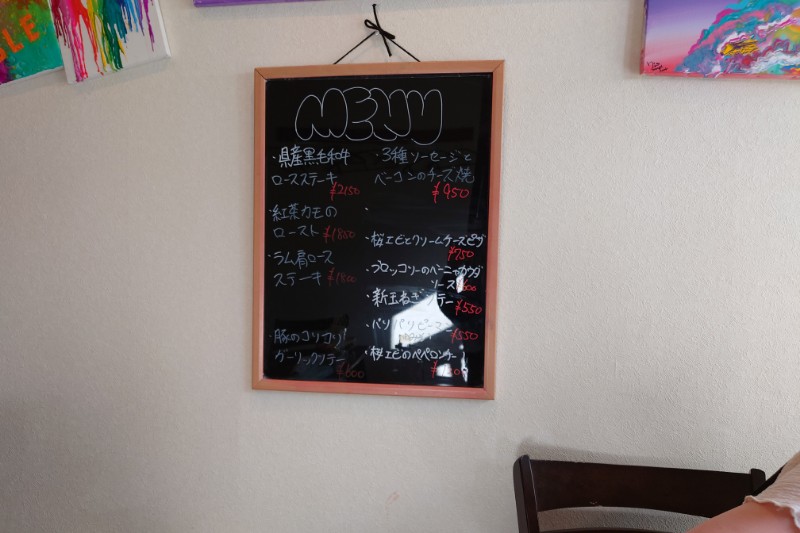 BLE
MENU
・県産黒毛和牛
ロースステーキ
¥2150
紅茶カモの
ロースト ¥1800
・ラム肩ロース
ステーキ ¥1800
・豚のコリコリ!
ガーリックソテー
¥600
・3種ソーセージと
ベーコンのチーズ焼
¥950
・桜エビとクリームチーズピザ
¥750
・ブロッコリーのバーニャカウダ
ソース
・新玉ねぎソテー
¥550
・パリパリピーマン
¥550
・桜エビのペペロンチーノ